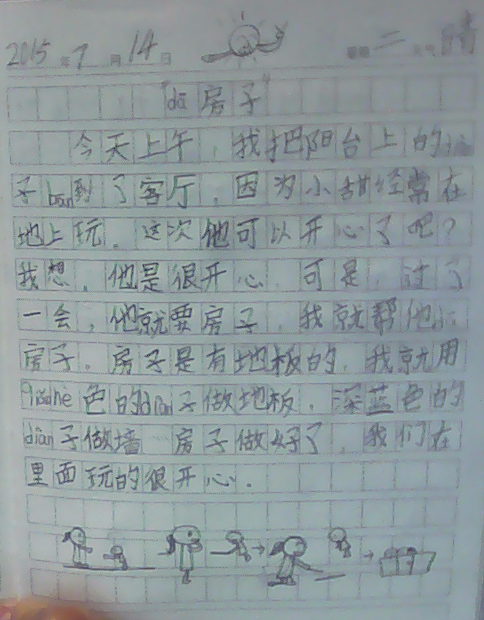 2015年7月14日 星期二 天气晴
"dā房子"
今天上午，我把阳台上的
子bān到了客厅，因为小甜经常在
地上玩。这次他可以开心了吧？
我想，他是很开心。可是，过了
一会，他就要房子，我就帮他
房子。房子是有地板的，我就用
色的diàn子做地板，深蓝色的
diàn子做墙 房子做好了，我们在
里面玩的很开心。